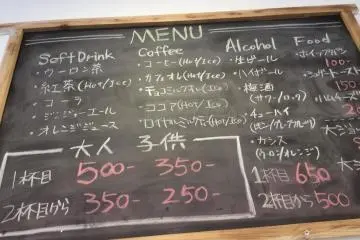 MENU
Soft Drink
・ウーロン茶
・紅茶(Hot/Ice)
・コーラ
・ジンジャーエール
・オレンジジュース
Coffee
・コーヒー(Hot/Ice)
・カフェオレ(Hot/Ice)
・チョコミルク(Hot/Ice)
・ココア(Hot/Ice)
・ロイヤルミルクティ(Hot/Ice)
Alcohol
・生ビール
・ハイボール
・梅酒
(サワー/ロック)
・チューハイ
・カシス
(ウーロン/オレンジ)
1杯目 650
2杯目から 500
Food
・ホイップパン
100-
・シュガートースト
150
大人 子供
1杯目 500- 350-
2杯目から 350- 250-